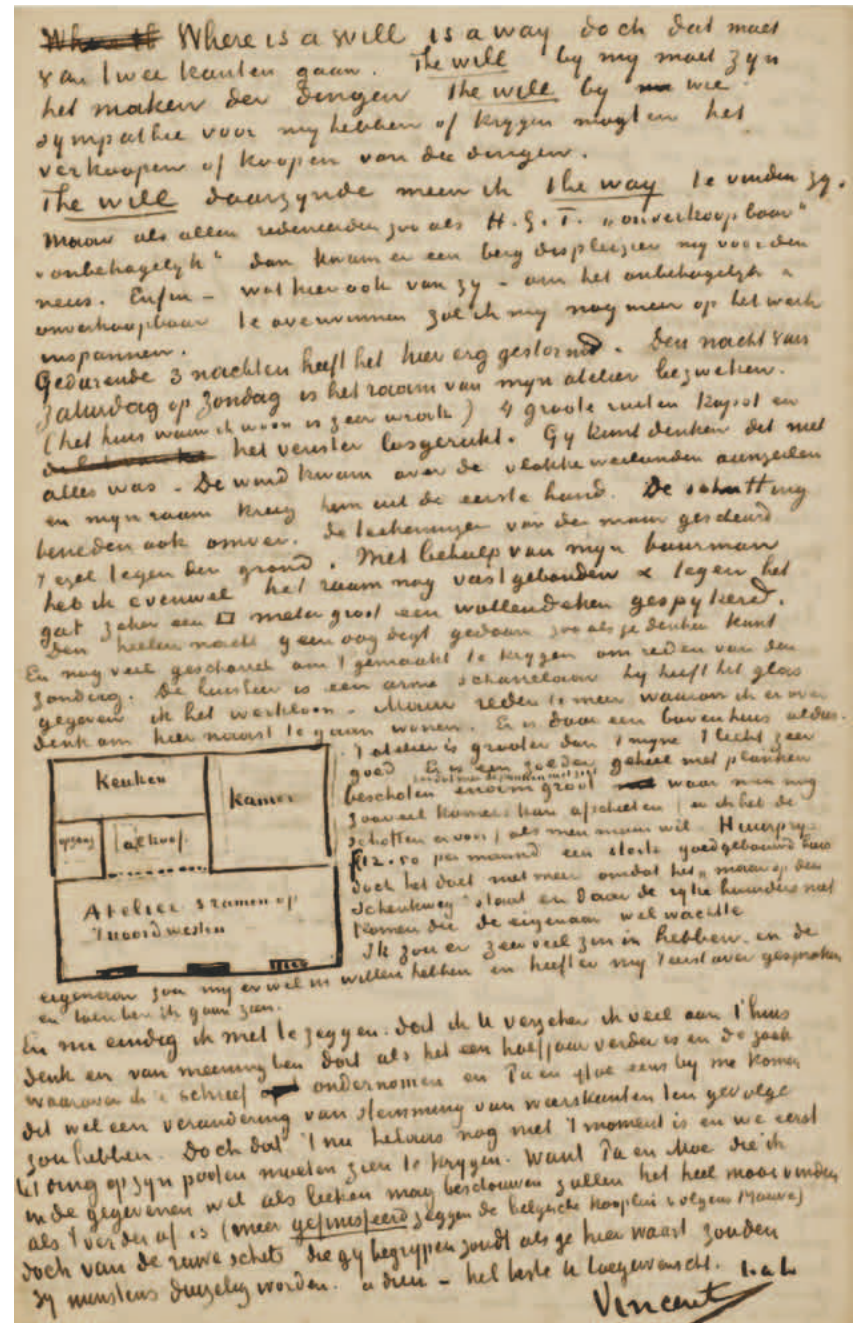 Where is a will is a way doch dat moet
van twee kanten gaan. The will by my moet zyn
het maken der dingen The will by wie
sympathie voor my hebben of krygen mogten het
verkoopen of koopen van die dingen.
The will daarzynde meen ik the way te vinden zy.
Maar als allen redeneerden zoo als H.G.T. „onverkoopbaar"
„onbehagelyk" dan kwam er een berg displeizier my voor den
neus. Enfin – wat hier ook van zy – om het onbehagelyk &
onverkoopbaar te overwinnen zal ik my nog meer op het werk
inspannen.
Gedurende 3 nachten heeft het hier erg gestormd. Den nacht van
Zaturdag op Zondag is het raam van myn atelier bezweken.
(het huis waar ik woon is zeer wrak) 4 groote ruiten kapot en
het venster losgerukt. Gy kunt denken dit niet
alles was – De wind kwam over de vlakke weilanden aanzeilen
en myn raam kreeg hem uit de eerste hand. De schutting
beneden ook omver. de teekeningen van den muur gescheurd
't ezel tegen den grond. Met behulp van myn buurman
heb ik evenwel het raam nog vastgebonden & tegen het
gat zeker een □ meter groot een wollen deken gespykerd.
Den heelen nacht geen oog digt gedaan zoo als je denken kunt
En nog veel gescharrel om 't gemaakt te krygen om reden van den
Zondag. De huisheer is een arme scharrelaar hy heeft het glas
gegeven ik het werkloon – Maar reden te meer waarom ik er over
denk om hier naast te gaan wonen. Er is daar een bovenhuis aldus.
't atelier is grooter dan 't myne 't licht zeer
goed Er is een zolder geheel met planken
beschoten enorm groot waar men nog
zooveel kamers kan afschieten (en ik heb de
schotten ervoor) als men maar wil. Huurprys
f12.50 per maand een sterk goedgebouwd huis
doch het doet niet meer omdat het „maar op den
Schenkweg" staat en daar de ryke huurders niet
komen die de eigenaar wel wachtte
Ik zou er zeer veel zin in hebben. en de
eigenaar zou my er wel in willen hebben en heeft er my 't eerst over gesproken
en toen ben ik gaan zien.
Keuken
Kamer
opgang
alkoof
Atelier 3 ramen op
't noordwesten
En nu eindig ik met te zeggen. dat ik U verzeker ik veel aan 't huis
denk en van meening ben dat als het een half jaar verder is en de zaak
waarover ik U schreef ondernomen en Pa en Moe eens by me komen
dit wel een verandering van stemming van weerskanten ten gevolge
zou hebben. Doch dat 't nu helaas nog niet 't moment is en we eerst
het ding op zyn pooten moeten zien te krygen. Want Pa en Moe die ik
in de gegevenen wel als leeken mag beschouwen zullen het heel mooi vinden
als 't verder af is (meer gefinisfeerd zeggen de belgische kooplui volgens Mauve)
doch van de ruwe schets die gy begrypen zoudt als ge hier waart zouden
zy minstens duizelig worden. adieu – het beste U toegewenscht. t.à t.
Vincent